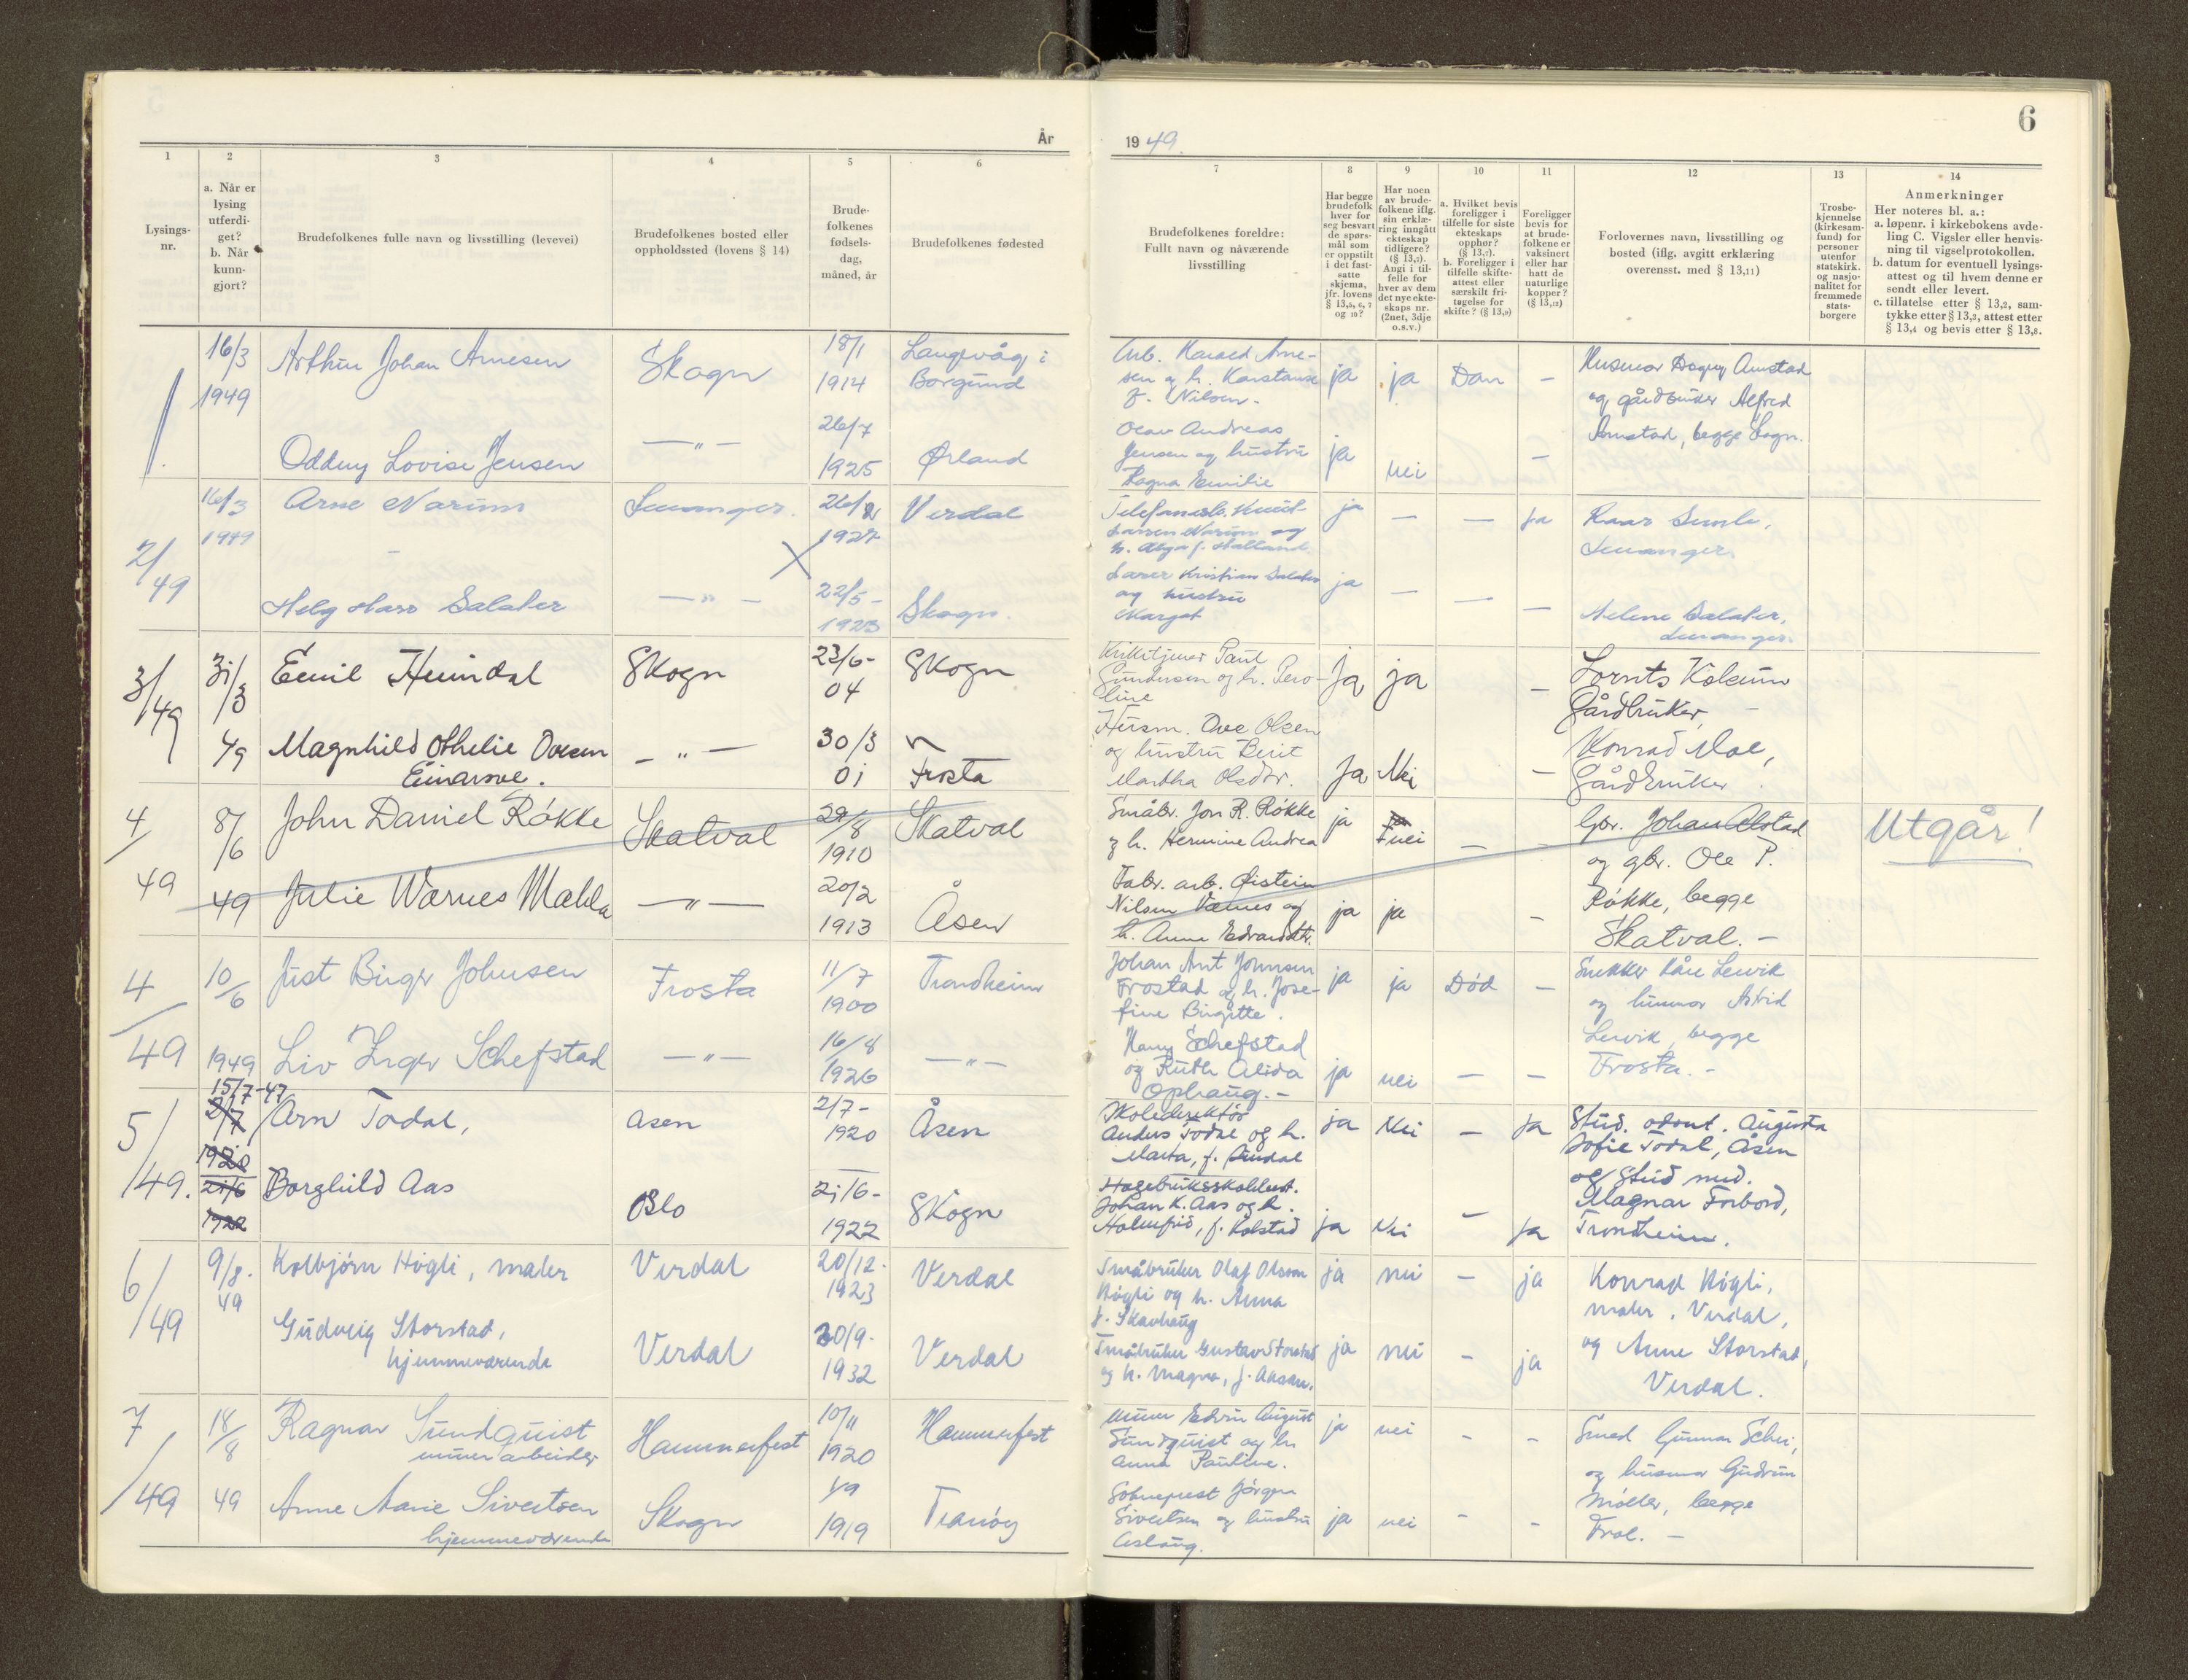 År
19 49.
6
1
2
3
4
5
6
7
8
9
10
11
12
13
14
Lysings-
nr.
a. Når er
lysing
utferdi-
get?
b. Når
kunn-
gjort?
Brudefolkenes fulle navn og livsstilling (levevei)
Brudefolkenes bosted eller
oppholdssted (lovens § 14)
Brude-
folkenes
fødsels-
dag,
måned, år
Brudefolkenes fødested
Brudefolkenes foreldre:
Fullt navn og nåværende
livsstilling
Har begge
brudefolk
hver for
seg besvart
de spørs-
mål som
er oppstilt
i det fast-
satte
skjema,
jfr. lovens
§ 13,5, 6, 7
og 10?
Har noen
av brude-
folkene iflg.
sin erklæ-
ring inngått
ekteskap
tidligere?
(§ 13,7).
Angi i til-
felle for
hver av dem
det nye ekte-
skaps nr.
(2net, 3dje
o.s.v.)
a. Hvilket bevis
foreligger i
tilfelle for siste
ekteskaps
opphør?
(§ 13,7).
b. Foreligger i
tilfelle skifte-
attest eller
særskilt fri-
tagelse for
skifte? (§ 13,9)
Foreligger
bevis for
at brude-
folkene er
vaksinert
eller har
hatt de
naturlige
kopper?
(§ 13,12)
Forlovernes navn, livsstilling og
bosted (iflg. avgitt erklæring
overensst. med § 13,11)
Trosbe-
kjennelse
(kirkesam-
fund) for
personer
utenfor
statskirk.
og nasjo-
nalitet for
fremmede
stats-
borgere
Anmerkninger
Her noteres bl. a.:
a. løpenr. i kirkebokens avde-
ling C. Vigsler eller henvis-
ning til vigselprotokollen.
b. datum for eventuell lysings-
attest og til hvem denne er
sendt eller levert.
c. tillatelse etter § 13,2, sam-
tykke etter § 13,3, attest etter
§ 13,4 og bevis etter § 13,8.
1/
16/3
1949
Arthur Johan Arnesen
Skogn
18/1
1914
Langevåg i
Borgund
Arb. Harald Arne-
sen og h. Konstanse
f. Nilsen.
ja
ja
Dom
–
Husmor Dagny Amstad
og gårdbruker Alfred
Amstad, begge Skogn.
Oddny Lovise Jensen
– " –
26/7
1925
Ørland
Olav Andreas
Jensen og hustru
Ragna Emilie
ja
nei
–
2/49
16/3
1949
Arne Narum
Levanger.
1927
Verdal
Larsen Narum og
ja
–
–
ja
Levanger.
– " –
22/5-
1923
Skogn.
og hustru
Margot
ja
–
–
–
Helene Salater,
Levanger.
3/49
31/3
49
Emil Heimdal
Skogn
23/6-
04
Skogn
Kirketjener Paul
Gundersen og h. Pero-
line
Ja
ja
–
Lornts Kolsum
Gårdbruker,
Magnhild Othelie Ovesen
Einarsve.
– " –
30/3
01
Frosta
Husm. Ove Olsen
og hustru Berit
Martha Olsdtr.
Ja
Nei
–
Konrad Moe,
Gårdbruker
4/49
8/6
49
John Daniel Røkke
Skatval
29/8
1910
Skatval
Småbr. Jon R. Røkke
og h. Hermine Andrea
ja
nei
–
–
Gbr. Johan Alstad
og gbr. Ole P.
Røkke, begge
Skatval. –
Utgår!
Julie Wærnes Mahla
– " –
20/2
1913
Åsen
Fabr. arb. Øistein
Nilsen Værnes og
h. Anna Edvardsdtr.
ja
ja
–
4/49
10/6
1949
Just Birger Johnsen
Frosta
11/7
1900
Trondheim
Johan Ant Johnsen
Frostad og h. Jose-
fine Birgitte.
ja
ja
Død
–
Snekker Kåre Lervik
og husmor Astrid
Lervik, begge
Frosta. –
Liv Inger Schefstad
– " –
16/8
1926
– " –
Harry Schefstad
og Ruth Alida
Ophaug. –
ja
nei
–
–
5/49.
15/7-47
2/7
1920
21/6
1922
Arn Todal,
Åsen
2/7-
1920
Åsen
Skoledirektør
Anders Todal og h.
Marta, f. Årndal
ja
Nei
–
ja
Stud. odont. Augusta
Sofie Todal, Åsen
og Stud med.
Magnar Forbord,
Trondheim.
Borghild Aas
Oslo
21/6-
1922
Skogn
Hagebruksskolelest.
Johan K. Aas og h.
Holmfrid, f. Kolstad
ja
Nei
–
ja
6/49
9/8.
49
Kolbjørn Høgli, maler
Verdal
20/12.
1923
Verdal
Småbruker Olaf Olsson
Høgli og h. Anna
f. Skavhaug
ja
nei
–
ja
Konrad Høgli,
maler. Verdal,
og Anne Storstad,
Verdal.
Gudveig Storstad,
hjemmeværende
Verdal
20/9-
1932
Verdal
Småbruker Gustav Storstad
og h. Magna, f. Aasan.
ja
nei
–
ja
7/49
18/8
49
Ragnar Sundquist
minerarbeider
Hammerfest
10/11
1920
Hammerfest
Minør Edvin August
Sundquist og h.
Anna Pauline.
ja
nei
–
–
Smed Gunnar Schei,
og husmor Gudrun
Møller, begge
Frol. –
Anne Marie Sivertsen
hjemmeværende
Skogn
1/9
1919
Tranøy
Sokneprest Jørgen
Sivertsen og hustru
Aslaug.
ja
nei
–
–